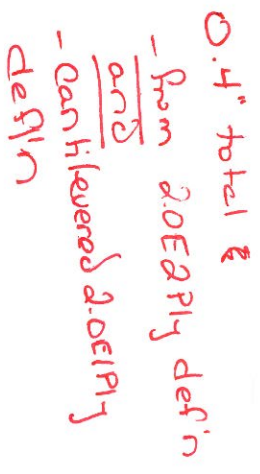 0.4" total &
-from 2.0E2Ply defln
and
-Cantilevered 2.0E1Ply
defln